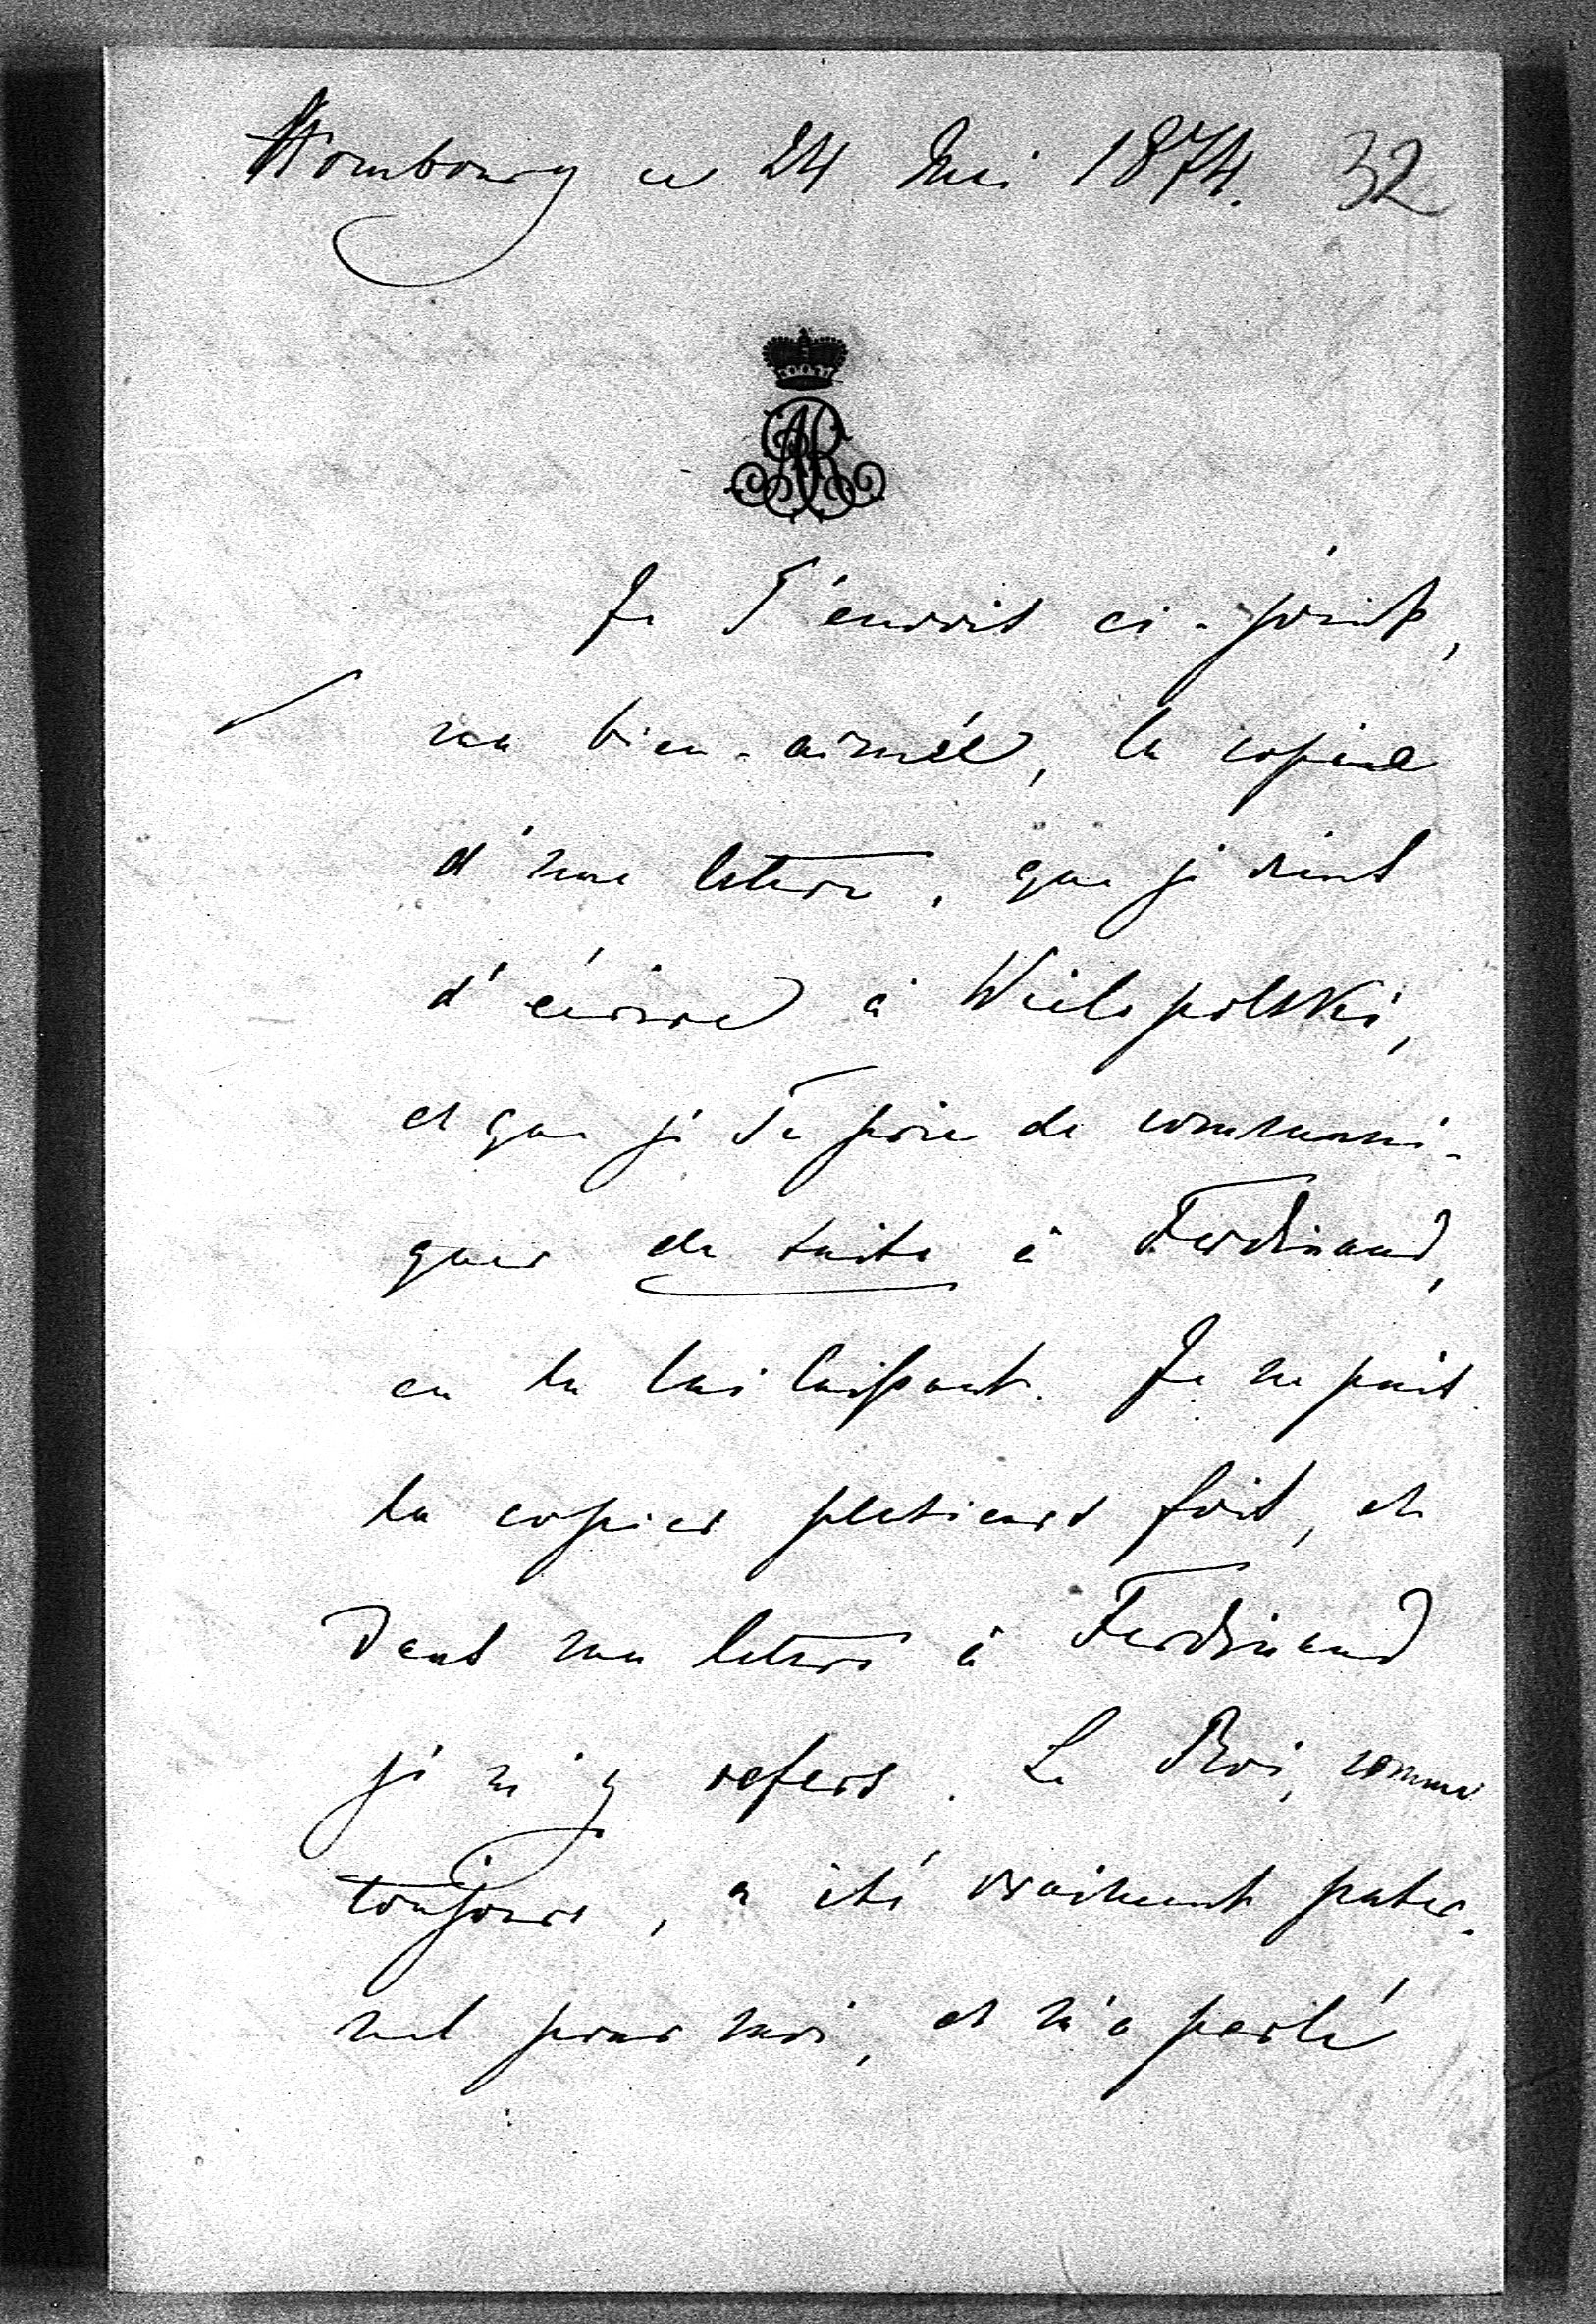 Hombourg ce 24 Mai 1874. 32
AR
Je T'envois ci-joint,
ma bien-aimée, la copie
d'une lettre, que je viens
d'écrire à Wielopolski,
et que je Te prie de communi-
quer de suite à Ferdinand,
en la lui laissant. Je ne puis
la copier plusieurs fois, et
dans ma lettre à Ferdinand
je m'y refers. Le Roi, comme
toujours, a été vraiment pater-
nel pour moi, et m'a parlé